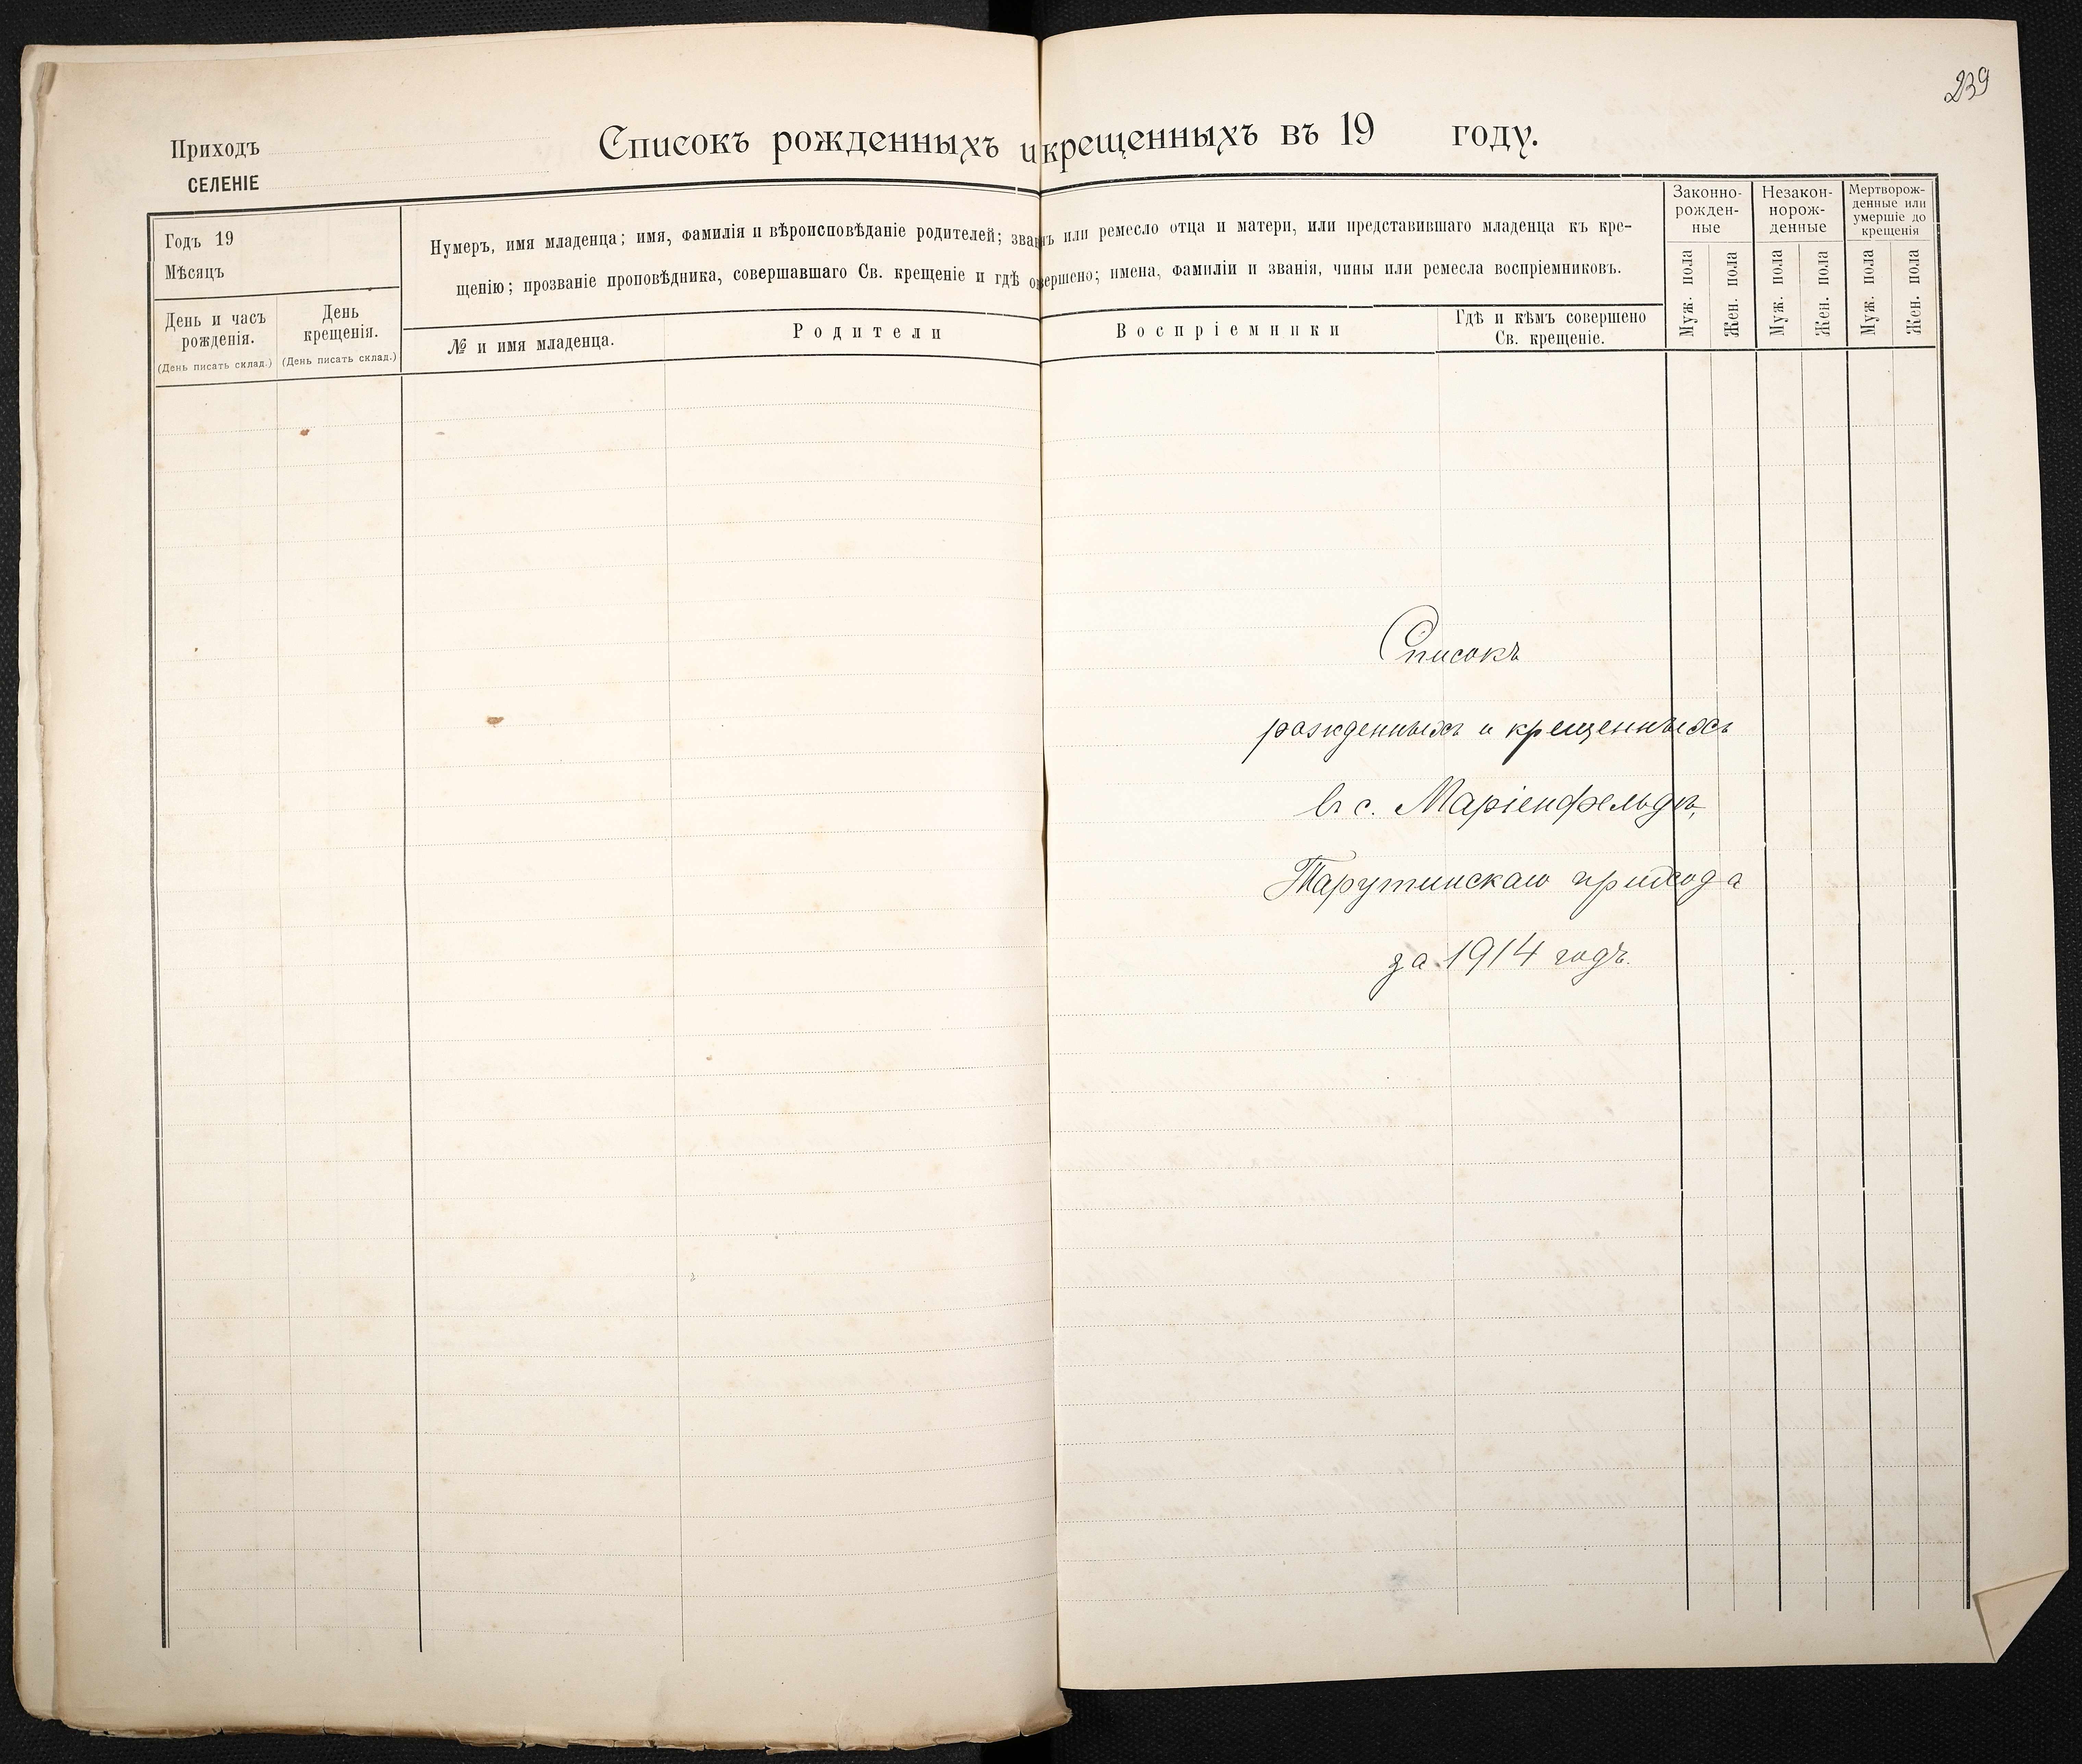 239
Списокъ рожденныхъ и крещенныхъ въ 19 году.
Приходъ
СЕЛЕНІЕ
Годъ 19
Мѣсяцъ
День и часъ рожденія.
(День писать склад.)
День крещенія.
(День писать склад.)
Нумеръ, имя младенца; имя, фамилія и вѣроисповѣданіе родителей; званіе или ремесло отца и матери, или представившаго младенца къ кре-
щенію; прозваніе проповѣдника, совершавшаго Св. крещеніе и гдѣ совершено; имена, фамиліи и званія, чины или ремесла воспріемниковъ.
№ и имя младенца.
Родители
Воспріемники
Гдѣ и кѣмъ совершено
Св. крещеніе.
Законно-
рожден-
ные
Муж. пола
Жен. пола
Незакон-
норож-
денные
Муж. пола
Жен. пола
Мертворож-
денные или
умершіе до
крещенія
Муж. пола
Жен. пола
Списокъ
рожденныхъ и крещенныхъ
въ с. Маріенфельдѣ,
Тарутинскаго прихода
за 1914 годъ.